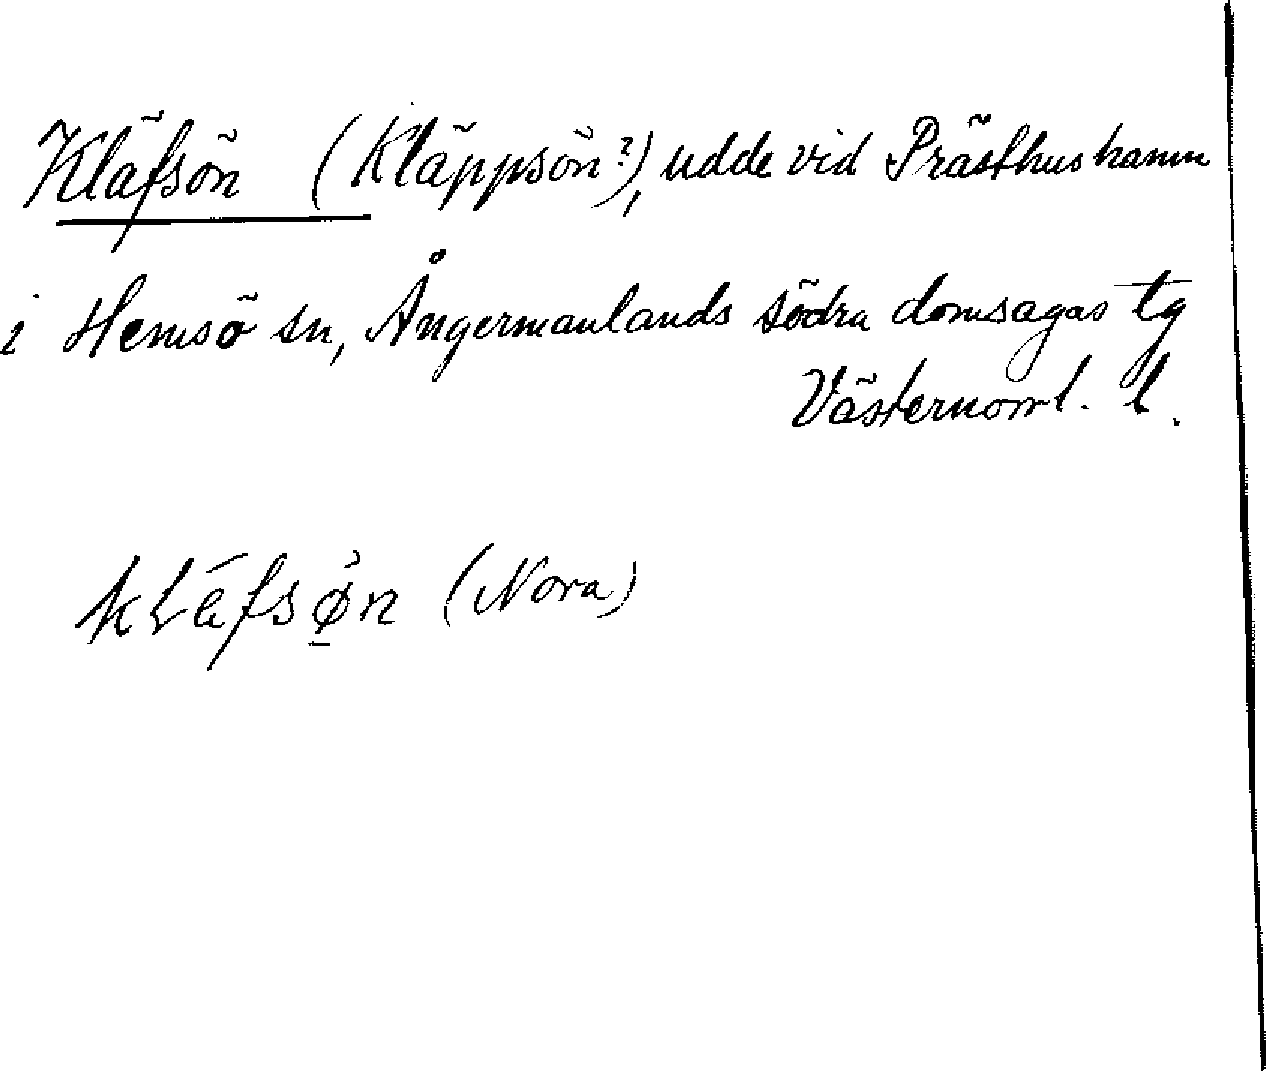 Kläfsön (Kläppsön?), udde vid Prästhushamn
i Hemsö sn, Ångermanlands södra domsagas tg
Västernorrl. l.
kläfsø̀n (Nora)